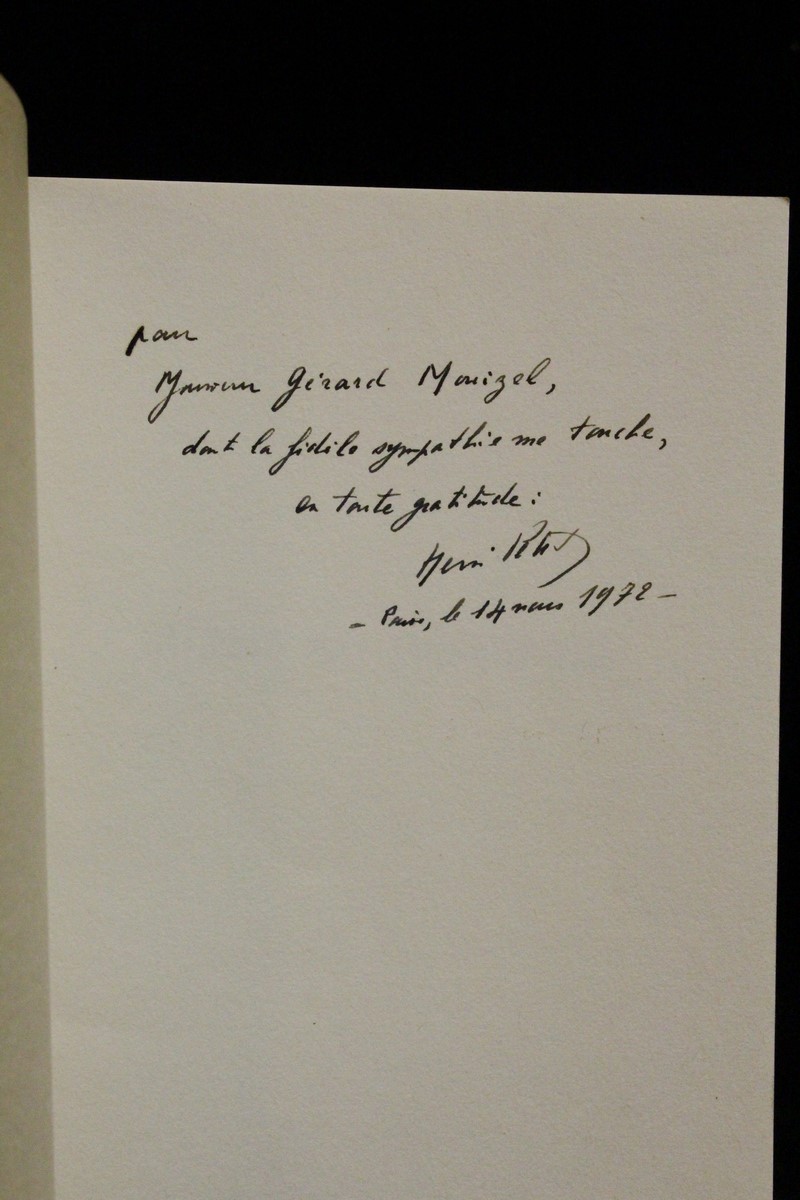 pour
Monsieur Gérard Mouizel,
dont la fidèle sympathie me touche,
en toute gratitude :
Henri
– Paris, le 14 mars 1972 –